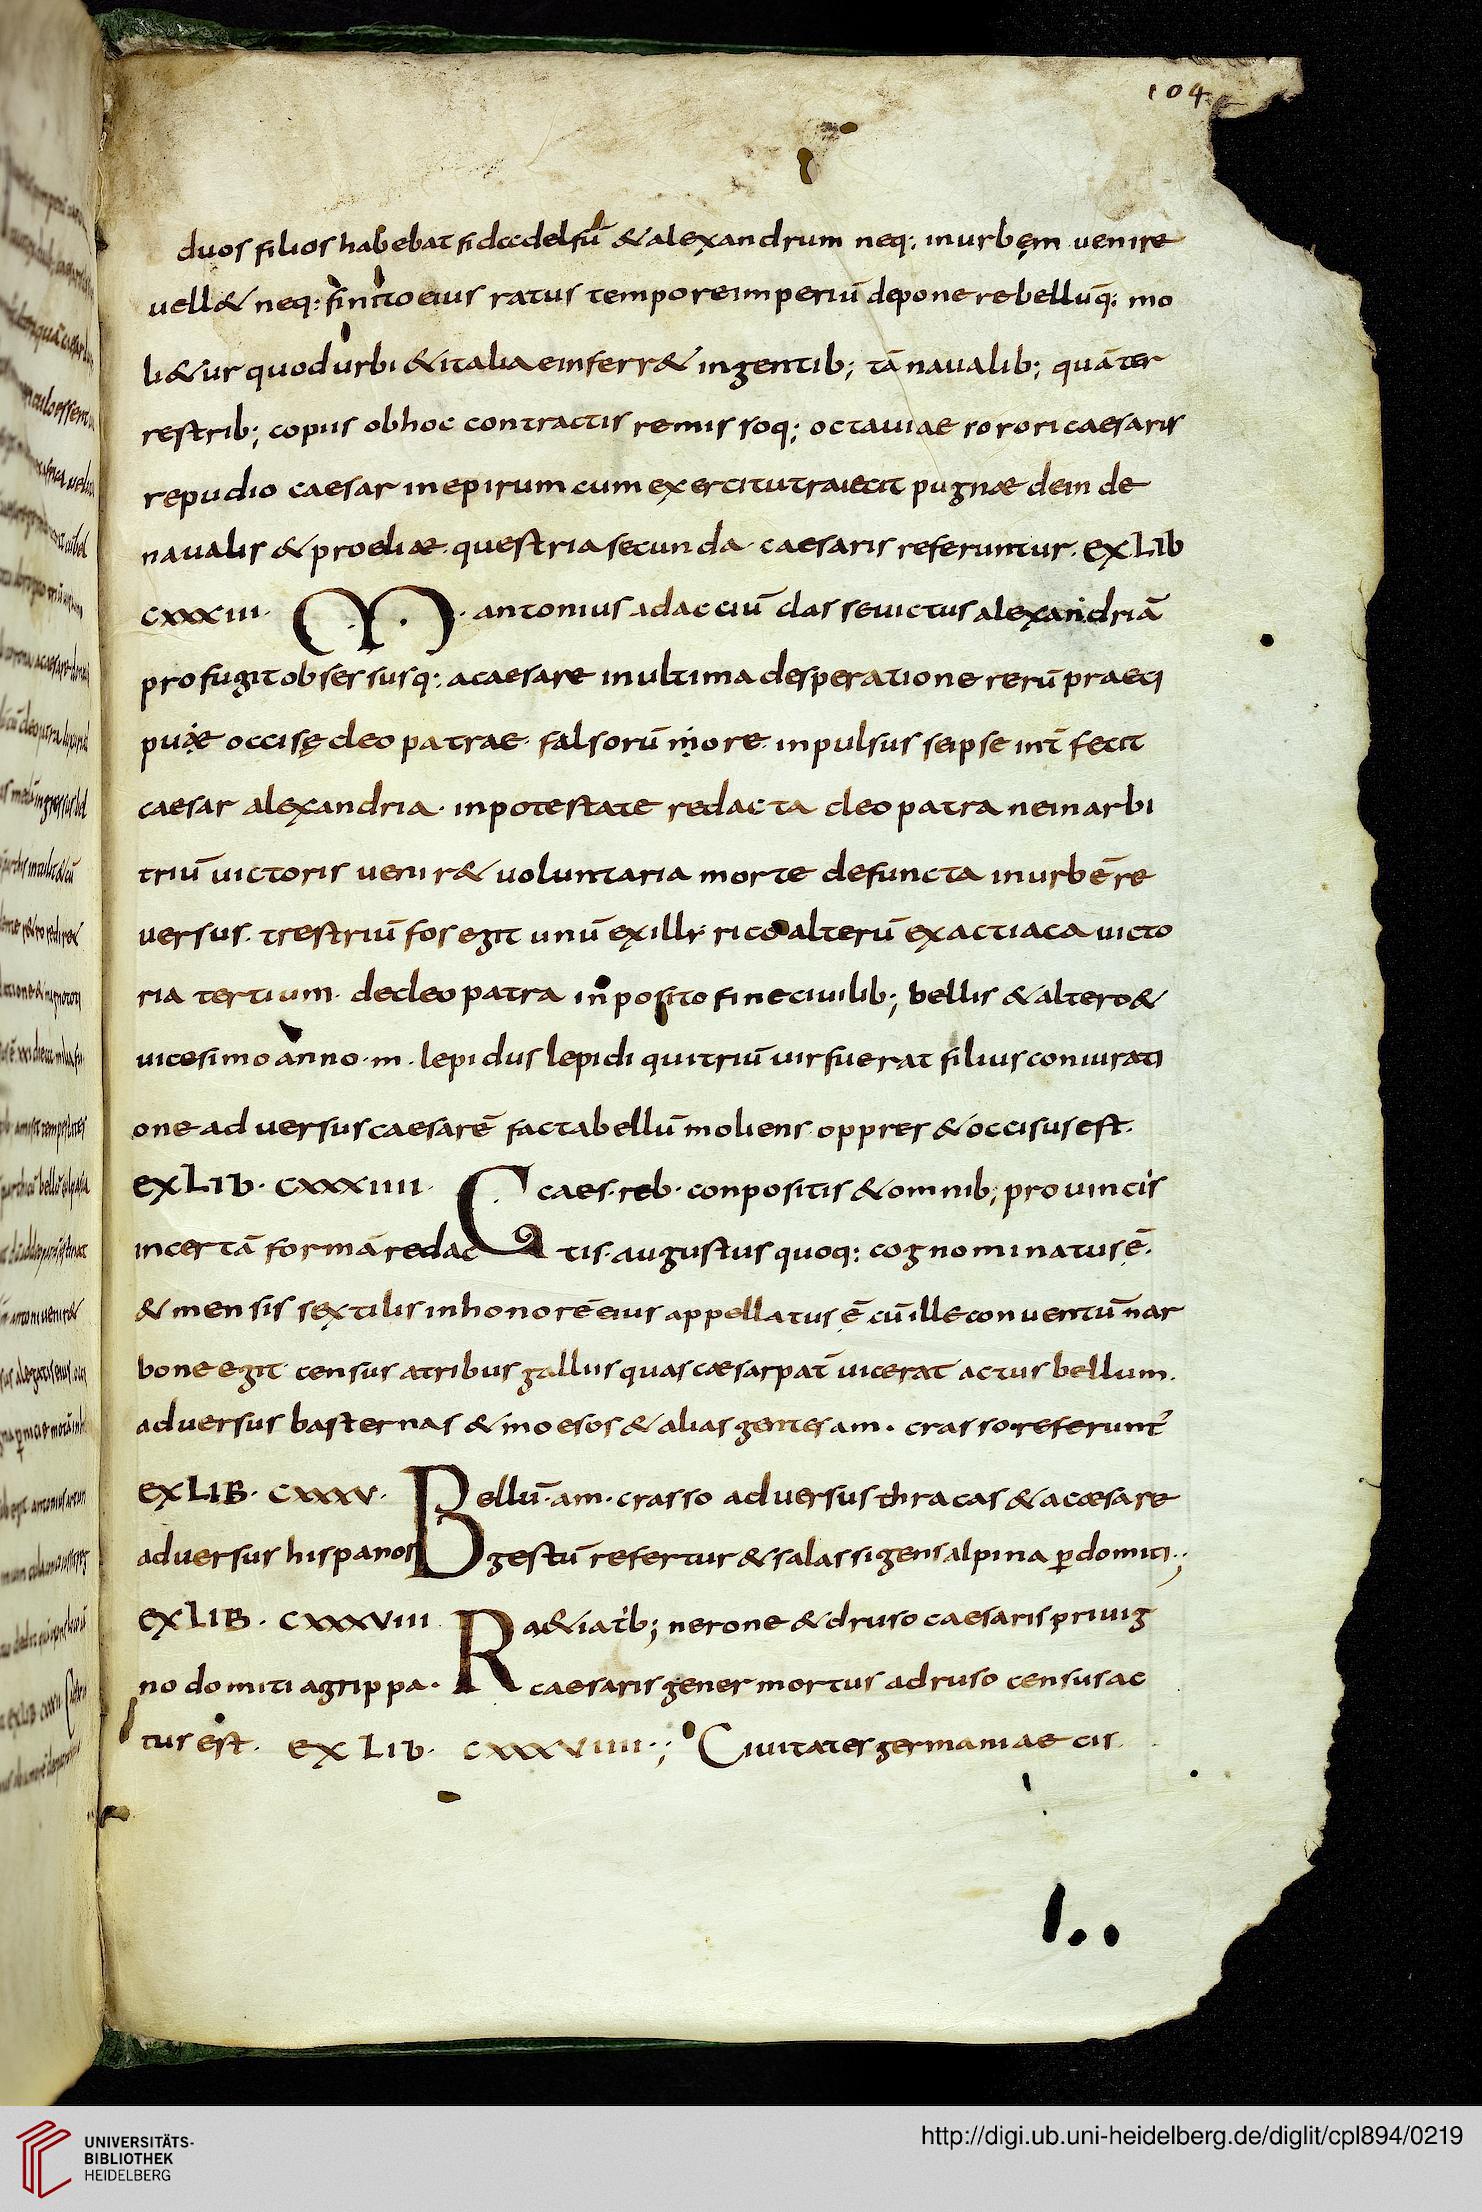 104
duos filios habebat fidccdelfu &alexandrum neq; inurbem venire
uell& neq: finito eius ratus tempore imperiū deponere bellūq; mo
li&ur quod urbi &italiae inferr& ingentib; tā naualib; quā ter
restrib; copiis obhoc contractis remis soq; octauiae sorori caesaris
repudio caesar inepirum cum exercitu traiecit pugnae dein de
naualis &proeliae questria secunda caesaris referuntur. EX LIB
CXXXIII. M. antonius adacciū classe uictus alexandriā
profugit obsessusq; acaesare inultima desperatione rerū praeci
puae occise cleopatrae falsorū more inpulsus seipse int̄ fecit
caesar alexandria inpotestate redacta cleopatra neinarbi
triū uictoris uenir& uoluntaria morte defuncta inurbē re
uersus. trestriūfos egit unū exillyrico alterū exactiaca uicto
ria tertium decleopatra inposito fine ciuilib; bellis &altero&
uicesimo anno m. lepidus lepidi qui triū uir fuerat filius coniurati
one aduersus caesarē facta bellū moliens oppres &occisus est.
EX LIB. CXXXIIII. C caes. reb. conpositis &omnib; prouinciis
incertā formā redac tis. augustus quoq; cognominatus ē.
&mensis sextilis inhonorē eius appellatus ē cū ille conuentū nar
bone egit census atribus galliis quas caesar pat̄ uicerat actus bellum
aduersus basternas &moesos &alias gentes am. crasso referunt̄
EX LIB. CXXXV. Bellū am. crasso aduersus thracas &acaesare
aduersus hispanos gestū refertur &salassi gens alpina p̄domiti.;
EX LIB. CXXXVIII Ra&iatib; nerone &druso caesaris priuig
no domiti agrippa. caesaris gener mortus adruso census ac
tus est. EX LIB. CXXXVIIII.; Ciuitates germaniae cis
UNIVERSITÄTS-
BIBLIOTHEK
HEIDELBERG
http://digi.ub.uni-heidelberg.de/diglit/cpl894/0219